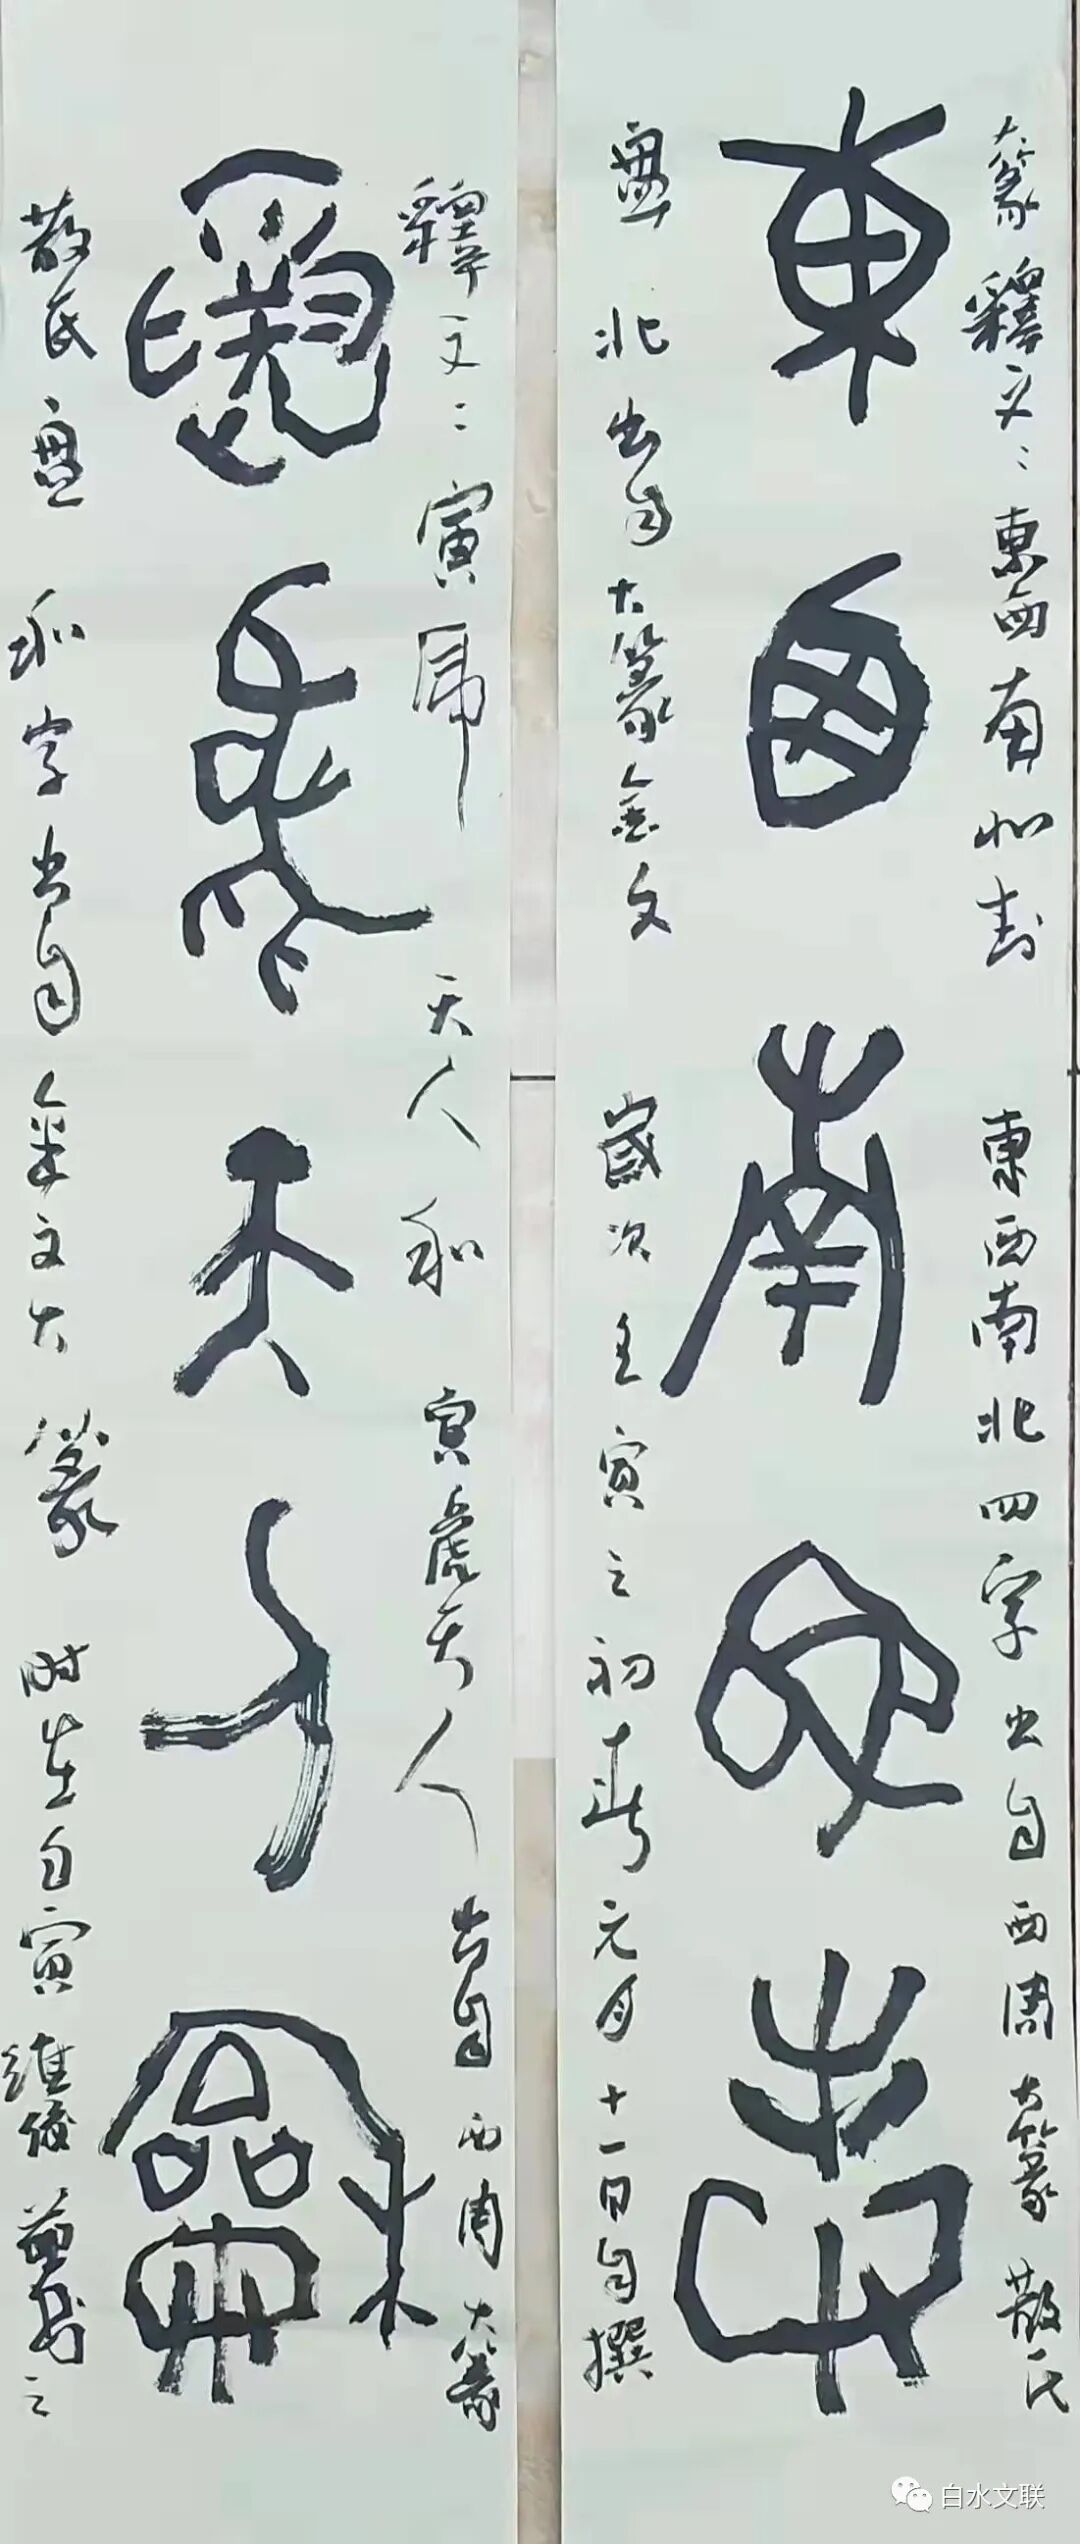 大篆 釋文：東西南北封 東西南北四字出自西周大篆 散氏
東西南北封
盤 北出自大篆金文 歲次壬寅之初春元月十一日自撰
釋文：寅虎 天人和 寅虎天人 出自西周大篆
寅虎天人龢
散氏盤 和字出自金文大篆 时在白寅
白水文联